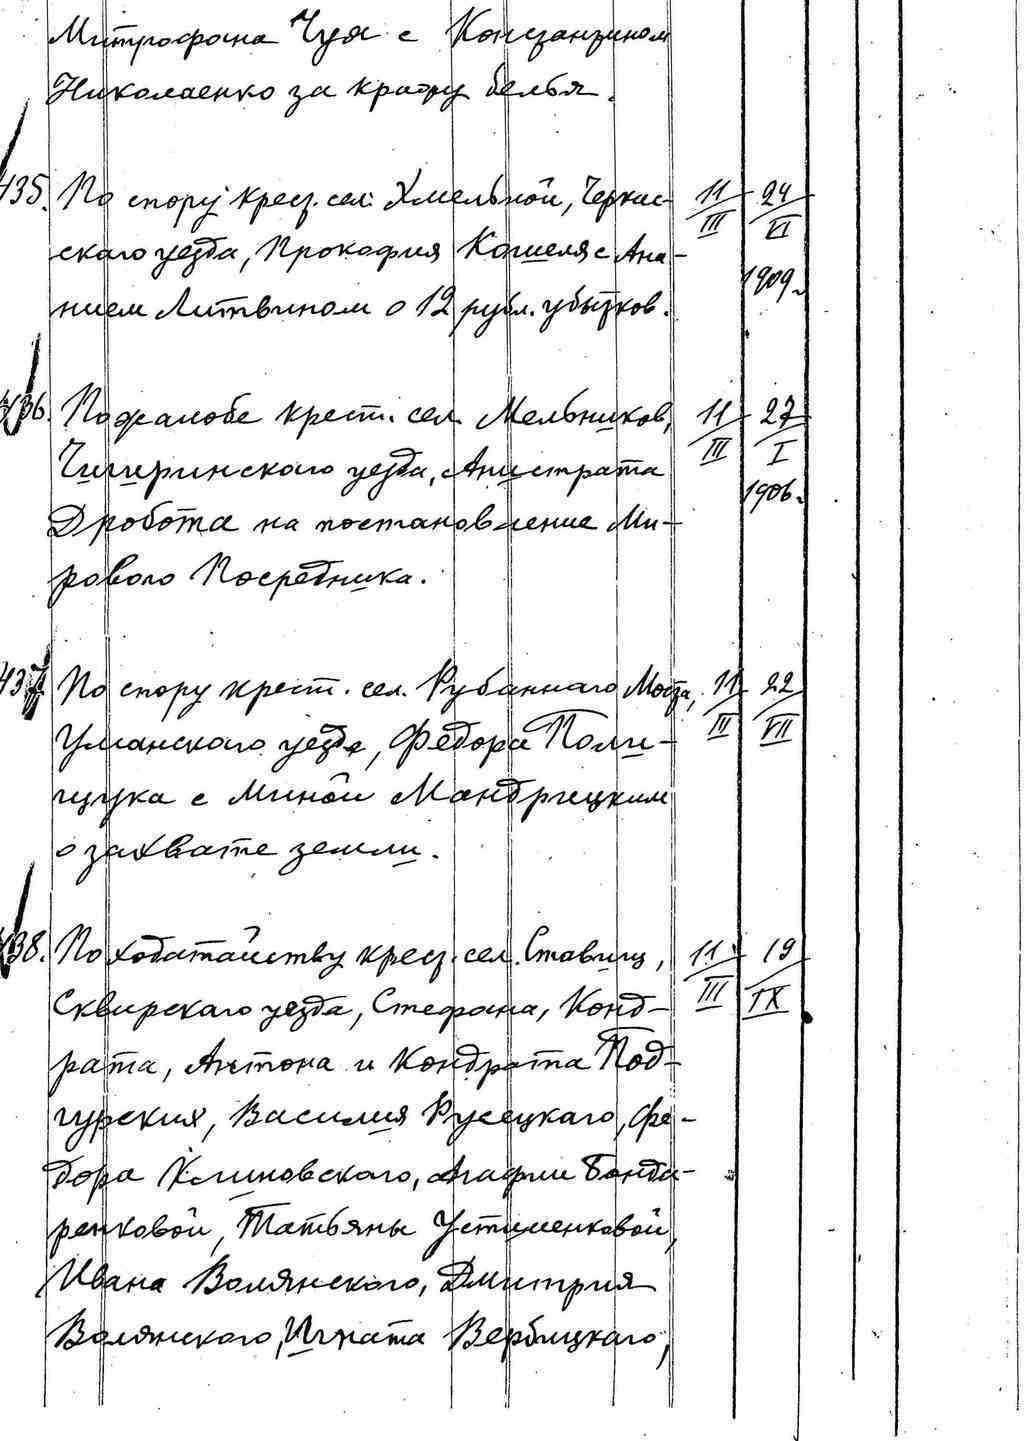 Митрофана Чуя с Константином
Николаенко за кражу белья.
435. По спору крест. сел. Хмельной, Черкас- 11/III 24/VI
скаго уезда, Прокофия Кошеля с Ана- 1909 г.
нием Литвином о 12 рубл. убытков.
436. По жалобе крест. сел. Мельников, 11/III 27/I
Чигиринскаго уезда, Апистрата 1906 г.
Дробота на постановление Ми-
рового Посредника.
437. По спору крест. сел. Рубаннаго Моста, 11/III 22/VII
Уманскаго уезда, Федора Поли-
щука с Миной Мандрицким
о захвате земли.
438. По ходатайству крест. сел. Ставищ, 11/III 19/IX
Сквирскаго уезда, Стефана, Конд-
рата, Антона и Кондрата Под-
гурских, Василия Русецкаго, Фе-
дора Климовскаго, Агафии Бонда-
ренковой, Татьяны Устименковой,
Ивана Волянскаго, Дмитрия
Волянскаго, Игната Вербицкаго,